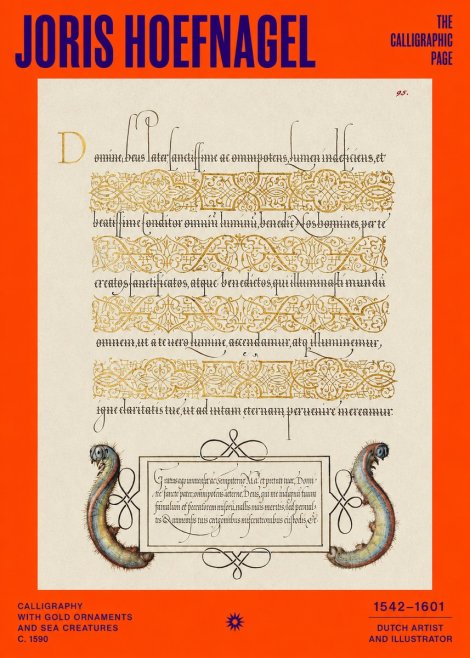 JORIS HOEFNAGEL
THE
CALLIGRAPHIC
PAGE
95.
Domine, Deus Pater sanctissime ac omnipotens, lumen indeficiens, et
beatissime Conditor omniū luminū, benedic Nos homines, per te
creatos sanctificatos, atque benedictos, qui illuminasti mundū
omnem, ut a te vero lumine, accendamur, atq illuminemur,
igne claritatis tue, ut ad intam eternam peruenire mereamur.
Gratias ago immensæ ac sempiternæ
sancte pater, omnipotens æterne Deus, qui me indignū tuum
famulum et peccatorem miserū, nullis meis meritis, sed
tis
CALLIGRAPHY
WITH GOLD ORNAMENTS
AND SEA CREATURES
C. 1590
1542–1601
DUTCH ARTIST
AND ILLUSTRATOR